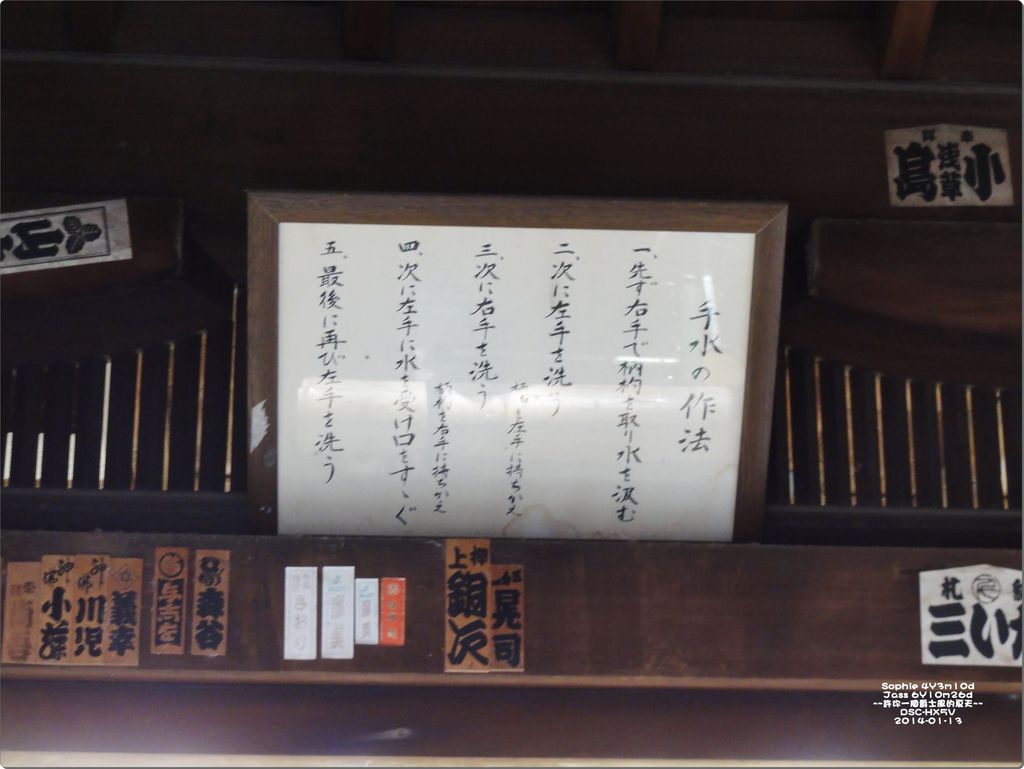 手水の作法
一、先ず右手で柄杓を取り水を汲む
二、次に左手を洗う
柄杓を左手に持ちかえ
三、次に右手を洗う
柄杓を右手に持ちかえ
四、次に左手に水を受け口をすゝぐ
五、最後に再び左手を洗う
小島
浅草
神常
小
神常
川児
義幸
森谷
上押
銅次
晃司
札
三い
Sophie 4Y3m10d
Jass 6Y10m26d
DSC-HX5V
2014-01-13